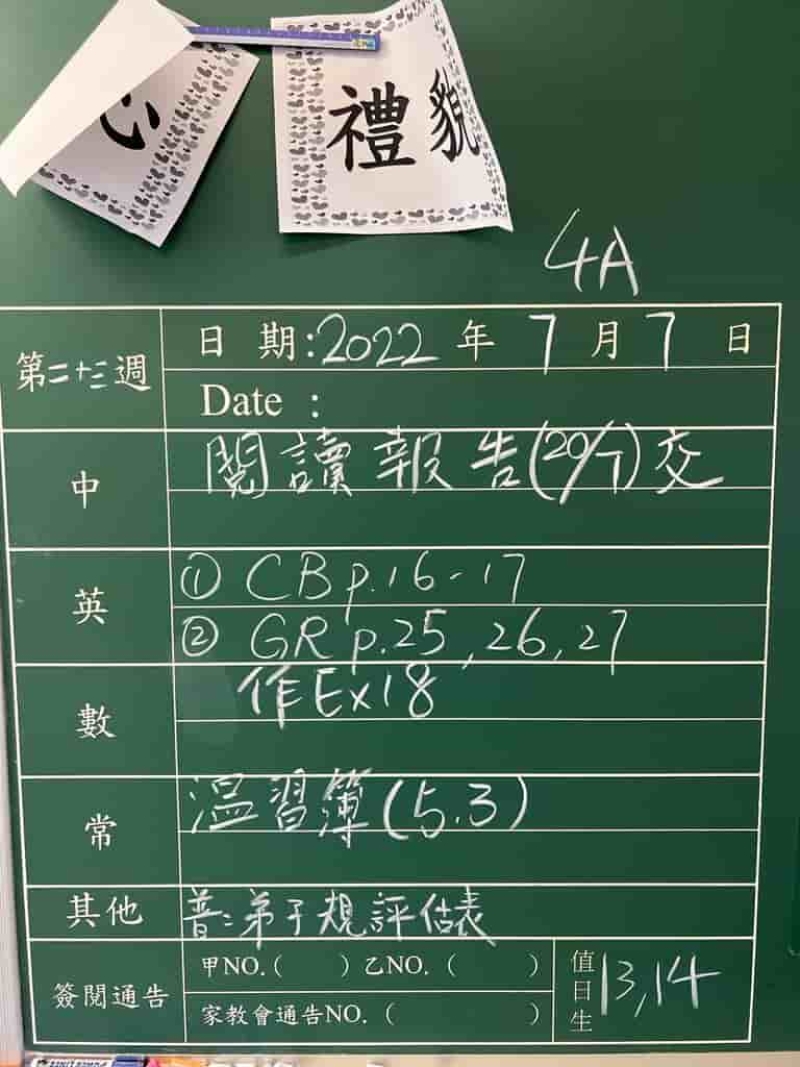 心
禮貌
4A
第二十三週
日 期:2022 年 7 月 7 日
Date :
中
閱讀報告(20/7)交
英
① CB p.16-17
② GR p.25, 26, 27
數
作Ex18
常
溫習簿(5.3)
其他
普:弟子規評估表
簽閱通告
甲NO.( ) 乙NO. ( )
家教會通告NO. ( )
值日生
13,14